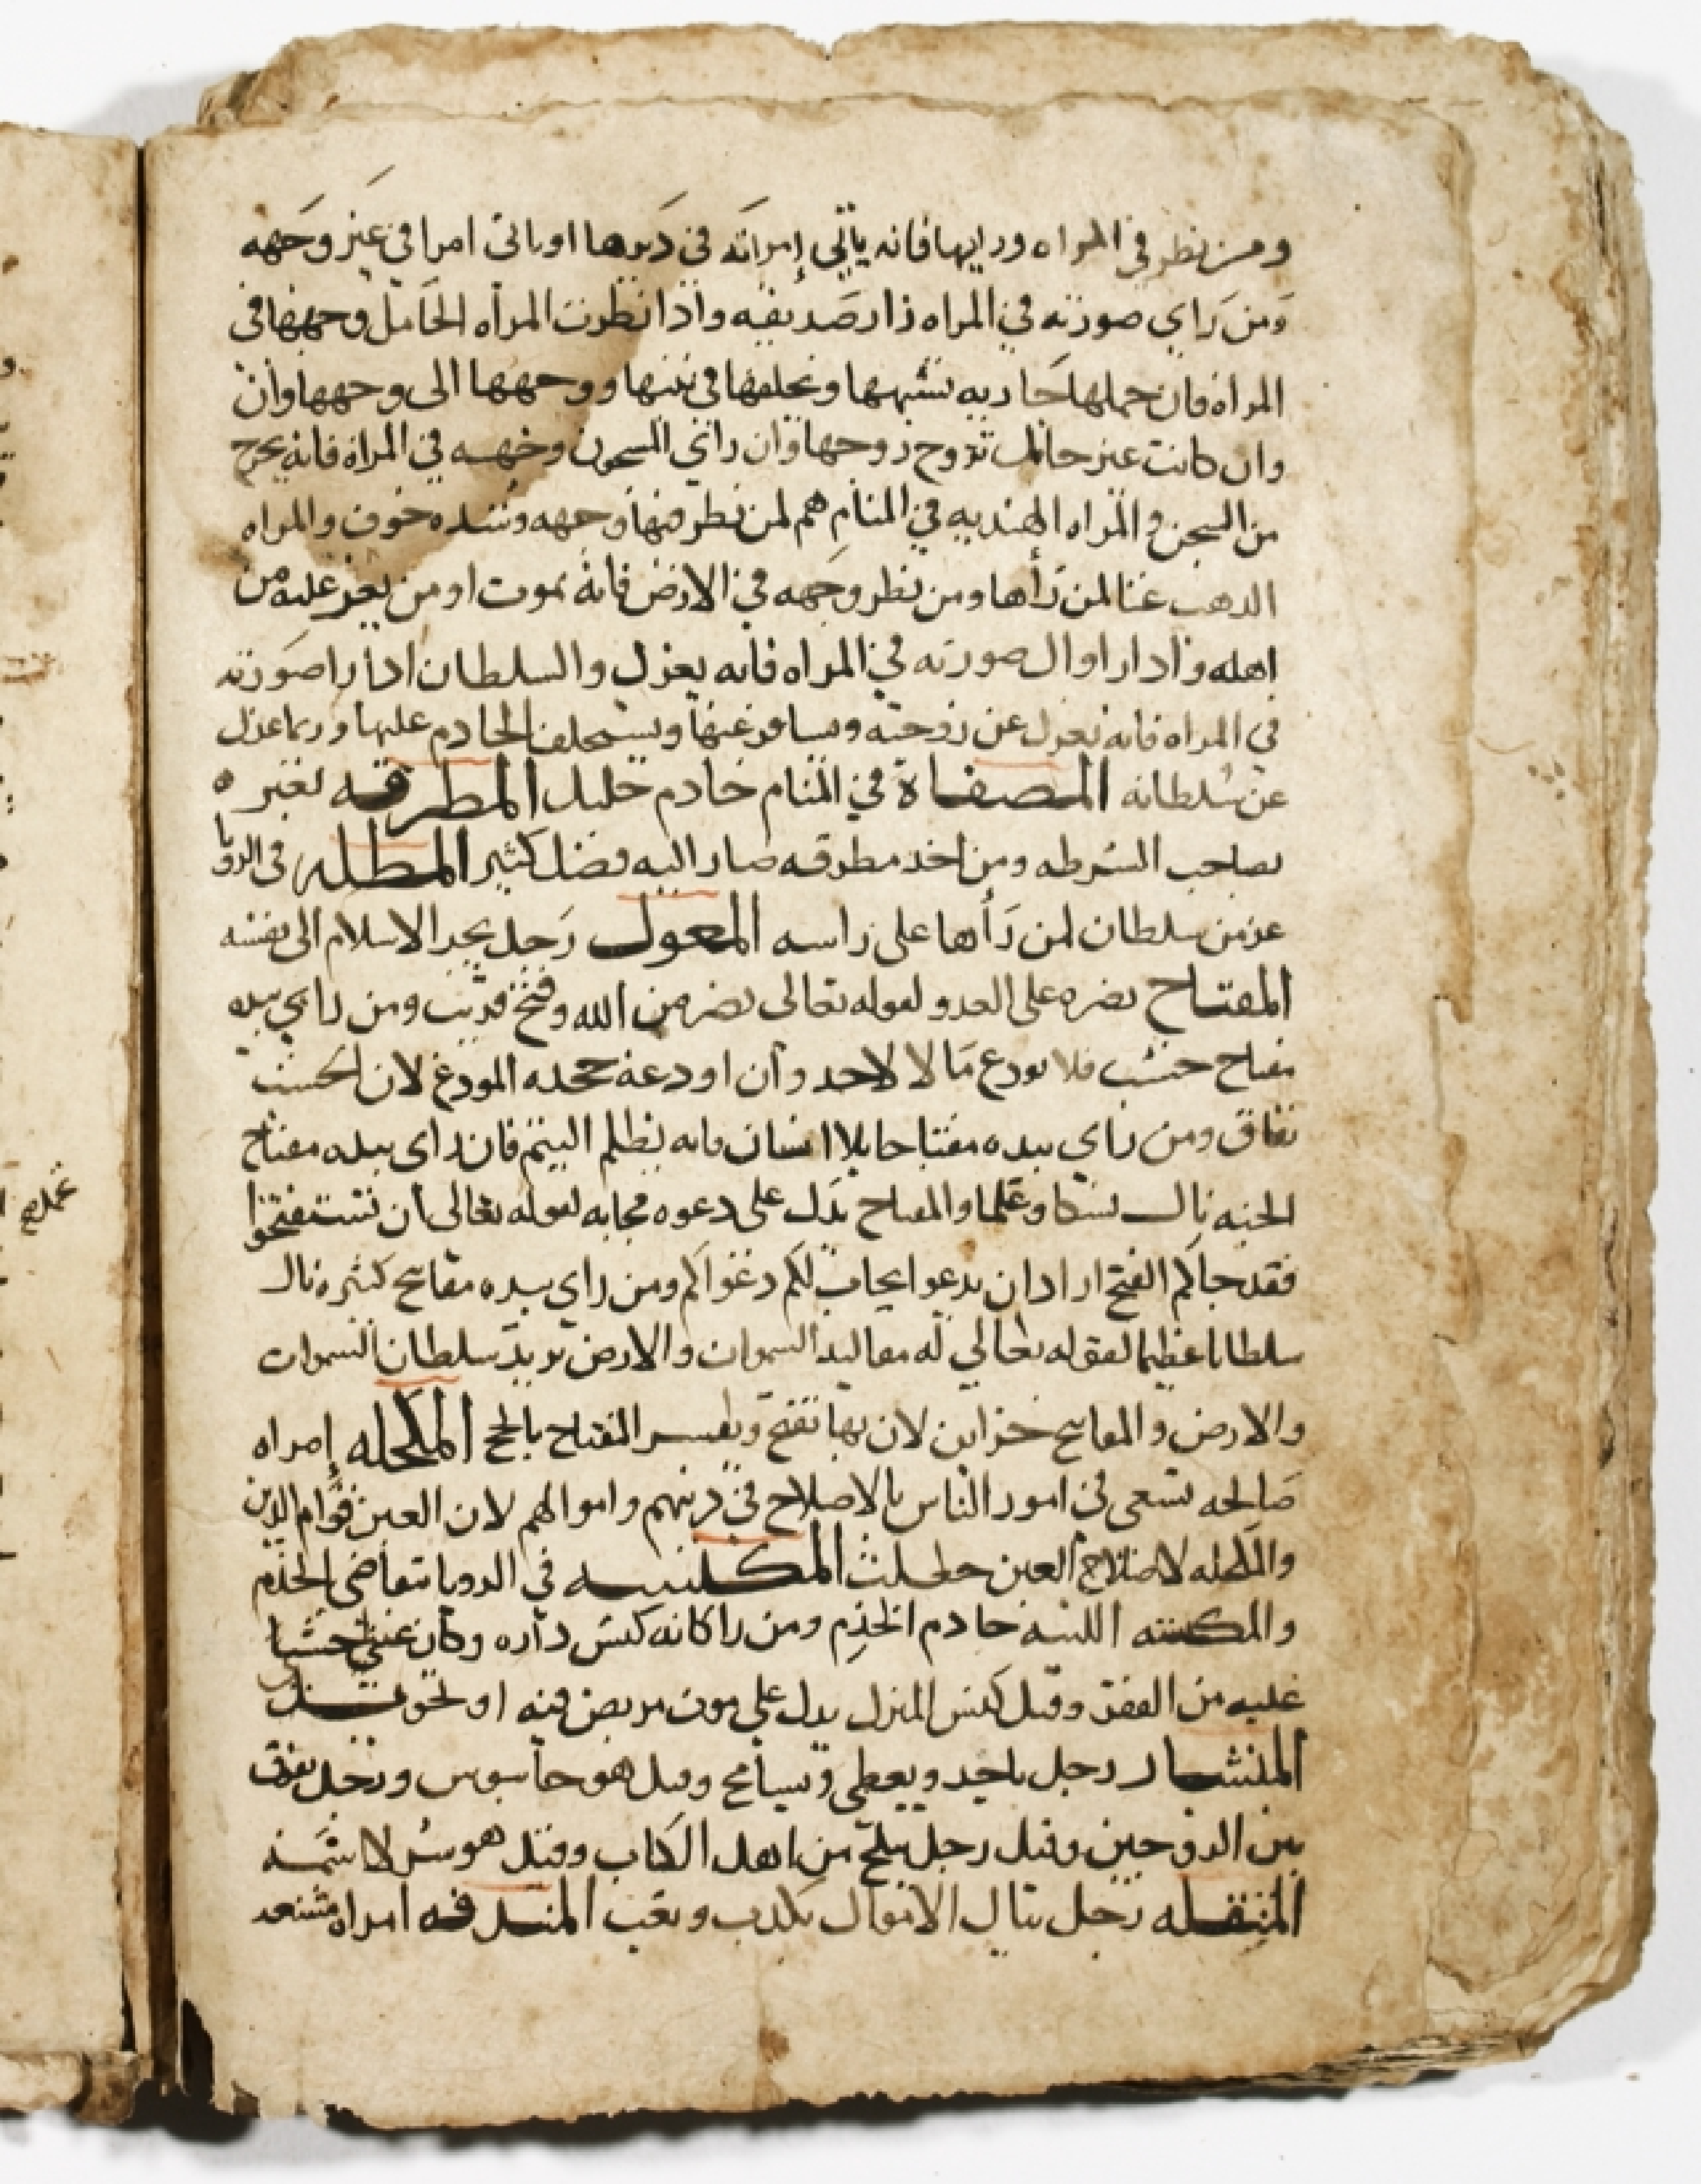 ومن نظر في المراه ورايها فانه ياتي إمراته في دبرها او ياتي امرا في غير وجهه
ومن راي صورته في المراه زار صديقه واذا نظرت المراه الحامل وجهها في
المراه فان حملها جاريه تشبهها وتخلفها في بيتها ووجهها الى وجهها وان
وان كانت غير حامل تزوج زوجها وان راي المسجون وجهه في المراه فانه يخرج
من السجن والمراه الهنديه في المنام هم لمن نظر فيها وجهه وشده خوف والمراه
الدهب غنا لمن رأها ومن نظر وجهه في الارض فانه يموت او من يعز عليه من
اهله واذا را الوال صورته في المراه فانه يعزل والسلطان اذا را صورته
في المراه فانه يعزل عن زوجته ويسافر عنها ويستخلف الخادم عليها وربما عزل
عن سلطانه المصفاة في المنام خادم جليل المطرقه تعبره
بصاحب الشرطه ومن اخد مطرقه صار اليه فضل كثير المظله في الرويا
عز من سلطان لمن رأها على راسه المعول رجل يجر الاسلام الى نفسه
المفتاح نصره على العدو لقوله تعالى نصر من الله وفتح قريب ومن راي بيده
مفتاح خشب فلا يودع مالا لاحد وان اودعه جحده المودع لان الخشب
نفاق ومن راي بيده مفتاحا بلا اسنان فانه يظلم اليتيم فان راي بيده مفتاح
الجنه نال نسكا وعلما والمفتاح يدل على دعوه مجابه لقوله تعالى ان تستفتحوا
فقد جاكم الفتح اراد ان يدعوا يجاب لكم دعواكم ومن راي بيده مفاتيح كثيره نال
سلطانا عظيما لقوله تعالي له مقاليد السموات والارض يريد سلطان السموات
والارض والمفاتيح خزاين لان بها تفتح ويفسر المفتاح بالحج المكحله إمراه
صالحه تسعى في امور الناس بالاصلاح في دينهم واموالهم لان العين قوام الدين
والمكحله لاصلاح العين جعلت المكنسه في الرويا تتقاضى الخدم
والمكنسه اللينه خادم الخدم ومن را كانه كنس داره وكان غنى خشيا
عليه من الفقر وقيل كنس المنزل يدل علي موت مريض فيه او تحو
المنشار رجل ياخد ويعطي ويسامح وقيل هو جاسوس ورجل يفرق
بين الزوجين وقيل رجل من اهل الكتاب وقيل هو
المنقله رجل ينال الاموال بكدب وتعب المندفه امراه